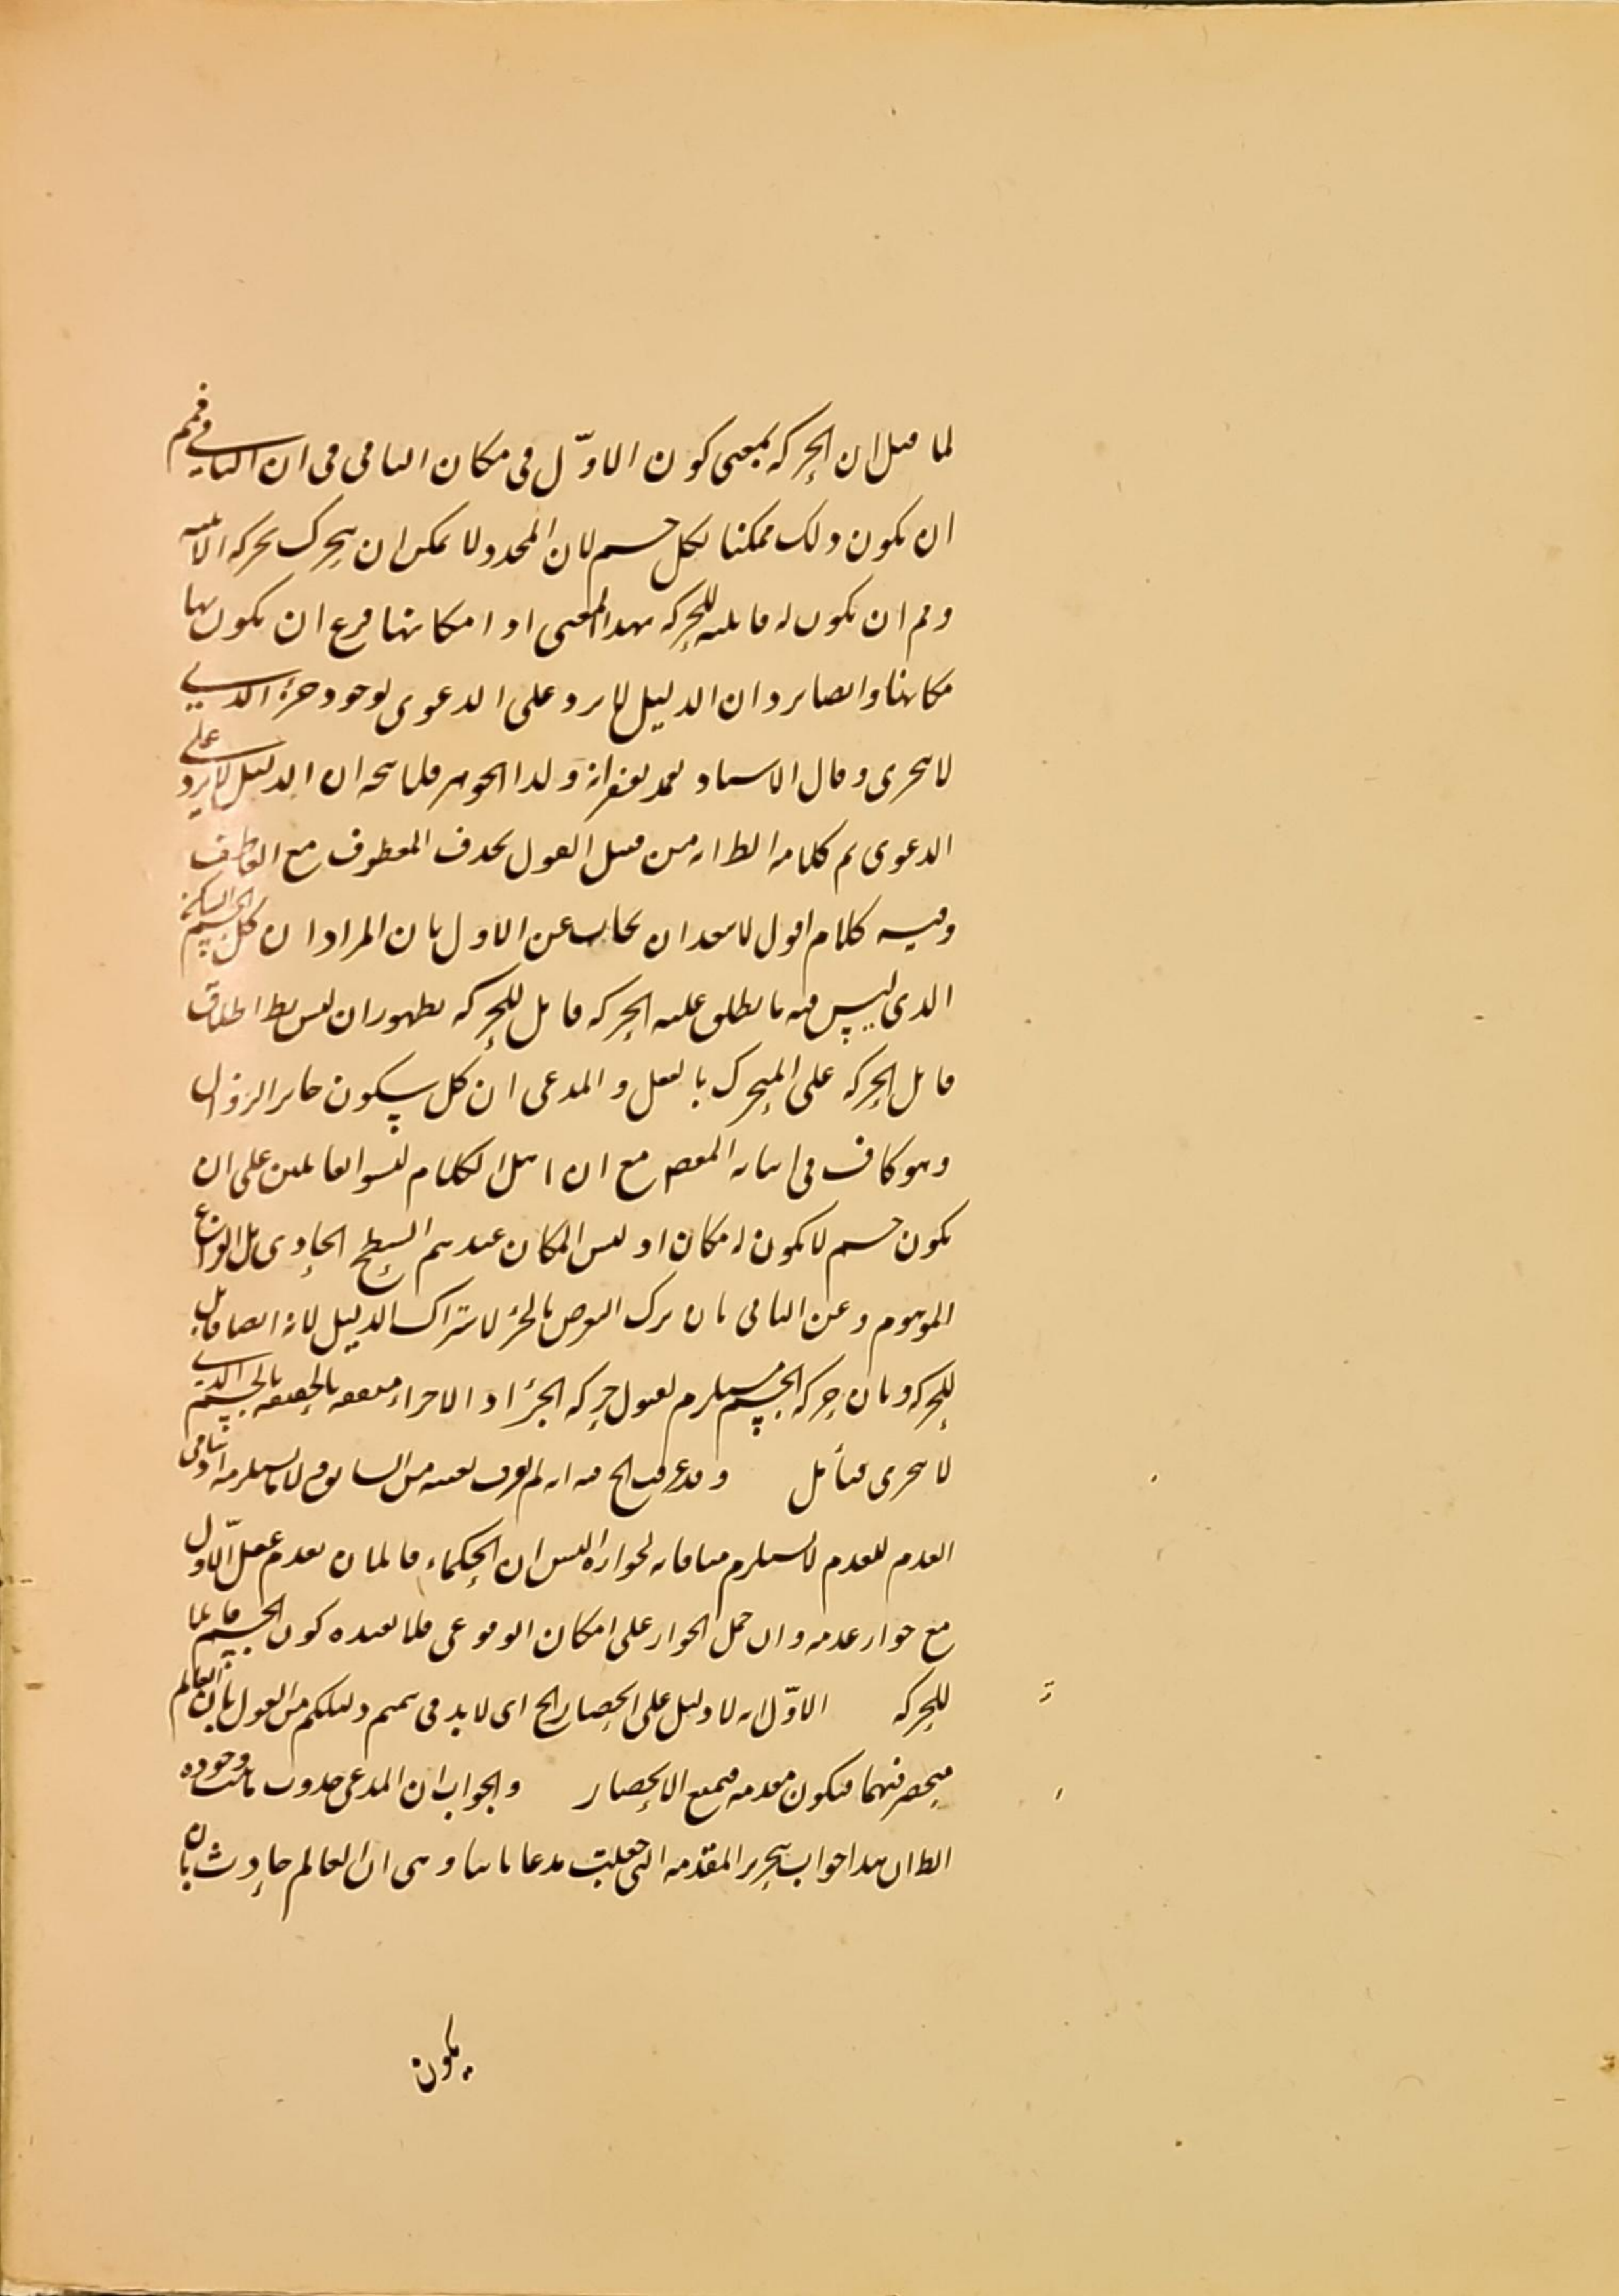 لما قيل ان الحركة بمعنى كون الاوّل فى مكان الثانى فى ان الثانى فمم
ان يكون ذلك ممكنا لكل جسم لان المحدد لا يمكن ان يتحرك بحركة الاينية
وفم ان يكون له قابلية للحركة بهذا المعنى اذ امكانها فرع ان يكون لها
مكانها وايضا يرد ان الدليل لا يرد على الدعوى لوجود جزء الذى
لا يتجزى وقال الاستاد تغمد بغفرانه ولد الجوهر فلا يتجه ان الدليل لا يرد على
الدعوى تم كلامه الظ انه من قبيل القول بحذف المعطوف مع العاطف
وفيه كلام اقول لا يبعد ان يجاب عن الاول بان المراد ان كل الجسم الساكن
الذى ليس فيه ما يطلق عليه الحركة قابل للحركة لظهور ان ليس يط اطلاق
قابل الحركة على المتحرك بالفعل والمدعى ان كل سكون جايز الزوال
وهو كاف فى اثبات المقص مع ان اهل الكلام ليسوا قائلين على ان
يكون جسم لا يكون له مكان اذ ليس المكان عندهم السطح الحاوى بل الفراغ
الموهوم وعن الثانى بان ترك التعرض بالجزء لاشتراك الدليل لانه ايضا قابل
للحركة وبان حركة الجسم يستلزم لقبول حركة الجزء اذ الاجزاء متفقه بالحقيقه بالجسم الذى
لا يتجزى فتأمل وقد عرفت الخ فيه انه لم يعرف بعينه من السابق لا يستلزمه اذ تنافى
العدم للعدم لا يستلزم منافاته لجوازه اليس ان الحكماء قائلمان بعدم عقل الاوّل
مع جواز عدمه وان حمل الجواز على امكان الوقوعى فلا يفيده كون الجسم قابلا
للحركة الاوّل انه لا دليل على انحصار الخ اى لابد فى تتميم دليلكم من القول بان العالم
منحصر فيهما فيكون مقدمه فيمنع الانحصار والجواب ان المدعى حدوث ما ثبت وجوده
الظ ان هذا جواب بتحرير المقدمه التى جعلت مدعا ثانيا وهى ان العالم حادث بان
يكون